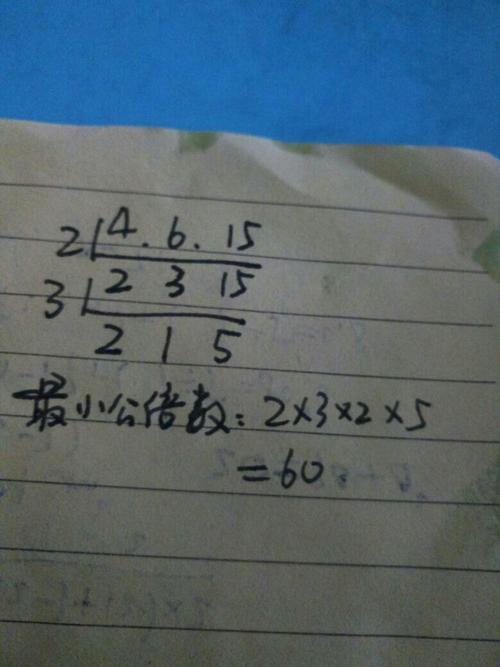 2 4. 6. 15
3 2 3 15
2 1 5
最小公倍数: 2×3×2×5
=60